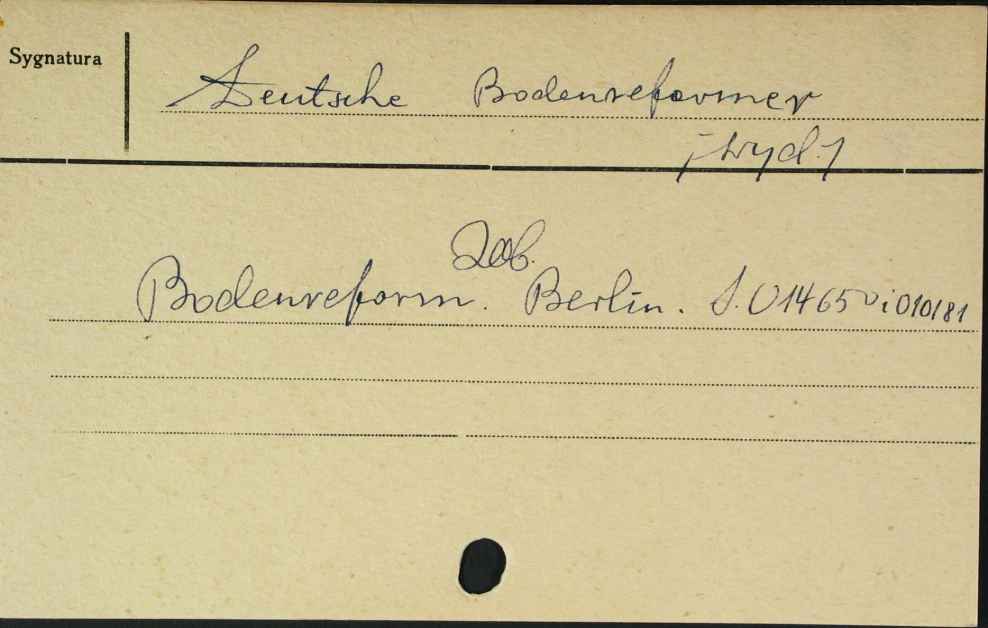 Sygnatura
Deutsche Bodenreformer
/wyd./
Zob.
Bodenreform. Berlin. S. 014650 i 010181